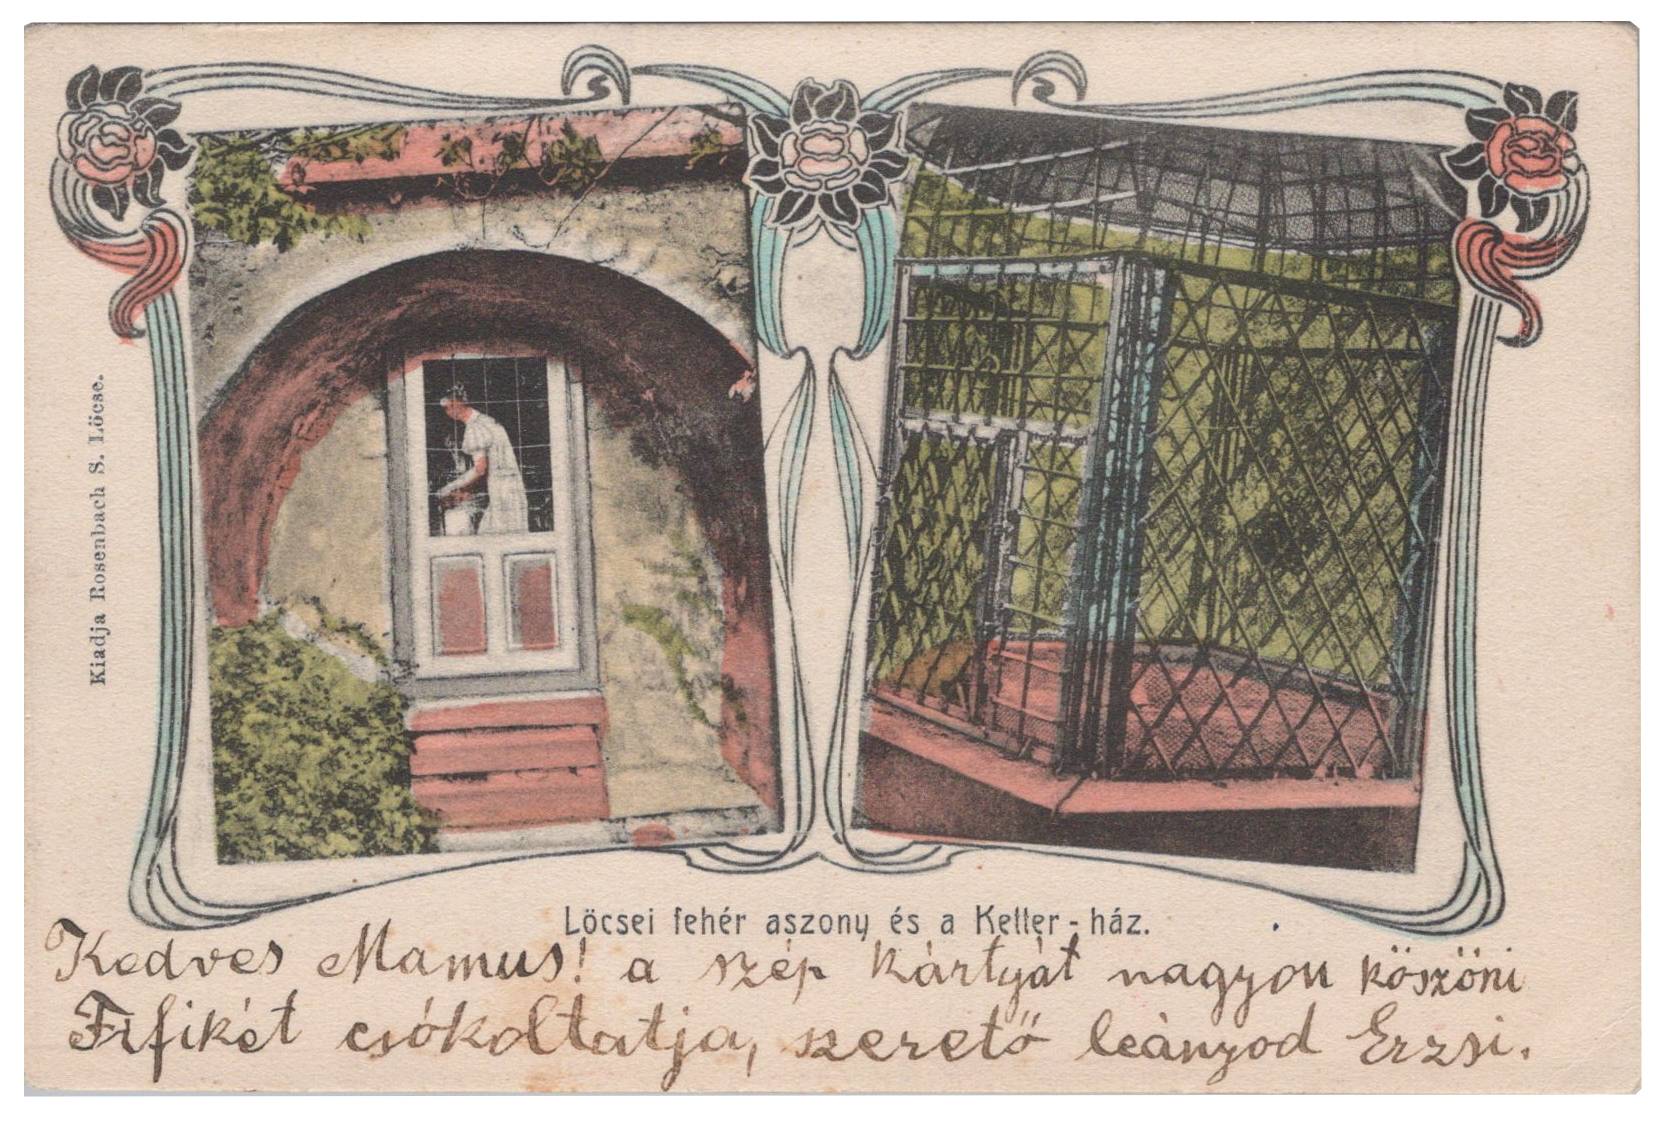 Kiadja Rosenbach S. Löcse.
Löcsei fehér aszony és a Keller-ház.
Kedves Mamus! a szép kártyát nagyon köszöni
Fifikét csókoltatja, szerető leányod Erzsi.